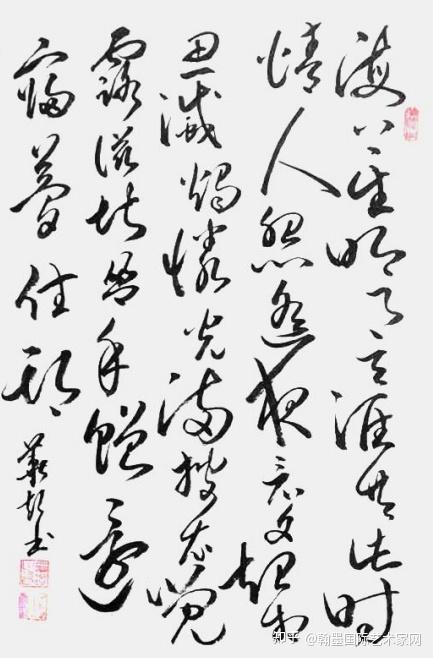 海上生明月天涯共此时
情人怨遥夜竟夕起相
思灭烛怜光满披衣觉
露滋堪盈手赠还
寝梦佳期
书
知乎 @翰墨国际艺术家网